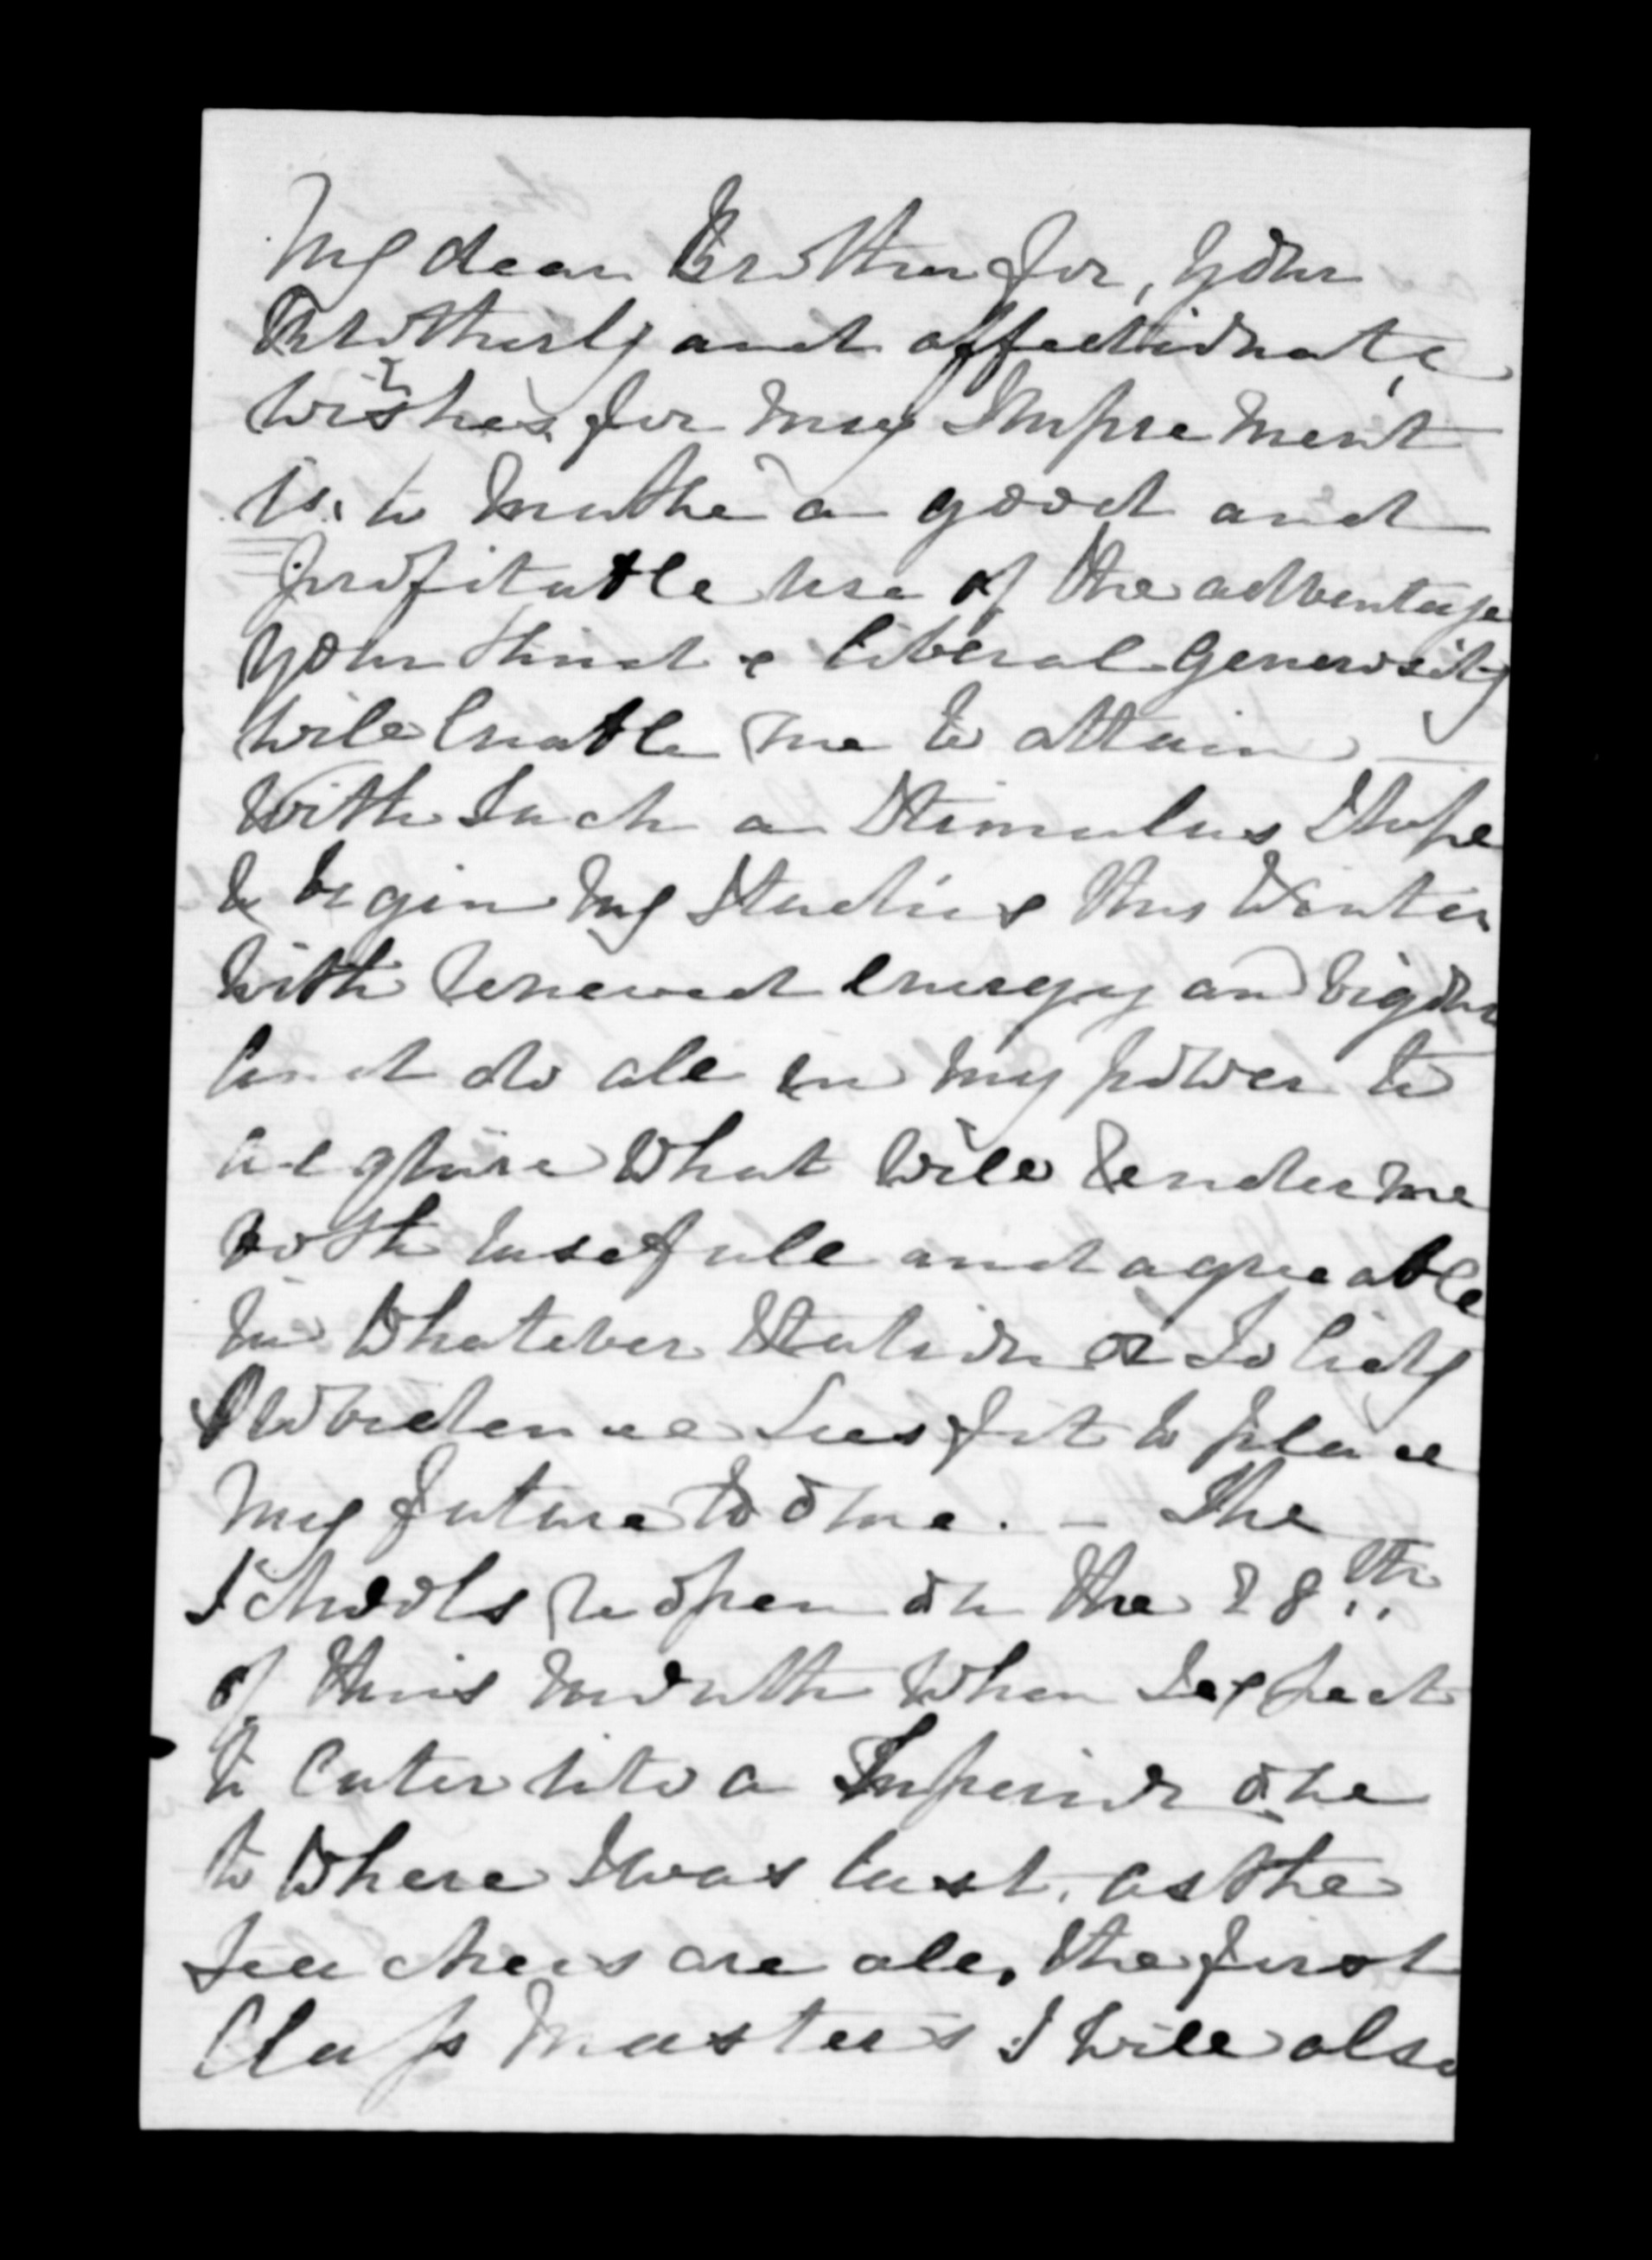 My dear Brother for, your
Brotherly and affectionate
wishes for my Imprement
is, to make a good and
profitable use of the adventage
your kind & liberal generosity
will enable me to attain
With Such a Stimulus I hope
to begin my Studies this Winter
with renewed energy and vigour
and do all in my power to
acquire what will render me
both usefull and agreeable
in whatever Station or Society
Providence Sees fit to place
my future to me. - The
Schools reopen on the 28th
of this month when I expect
to enter into a Superior one
to where I was last, as the
Teachers are all, the first
Class Masters I will also